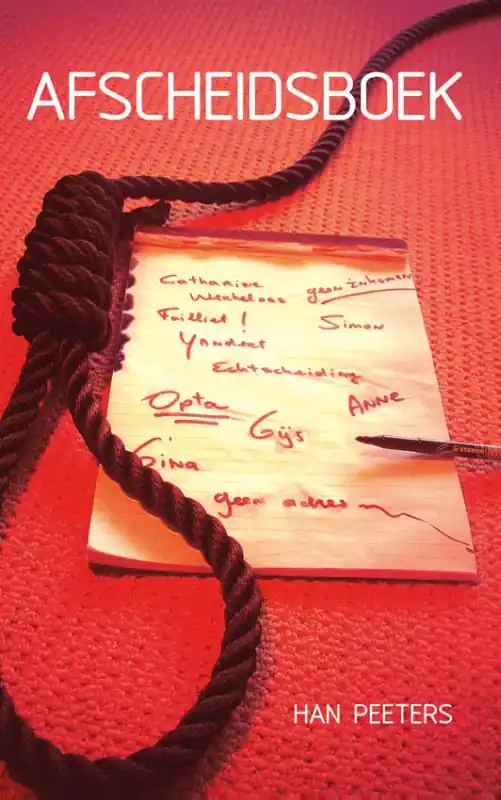 AFSCHEIDSBOEK
Catharine geen inkomen
Werkeloos
Failliet! Simon
Yandert
Echtscheiding
Opta ANNE
Gijs
Gina
geen adres
HAN PEETERS